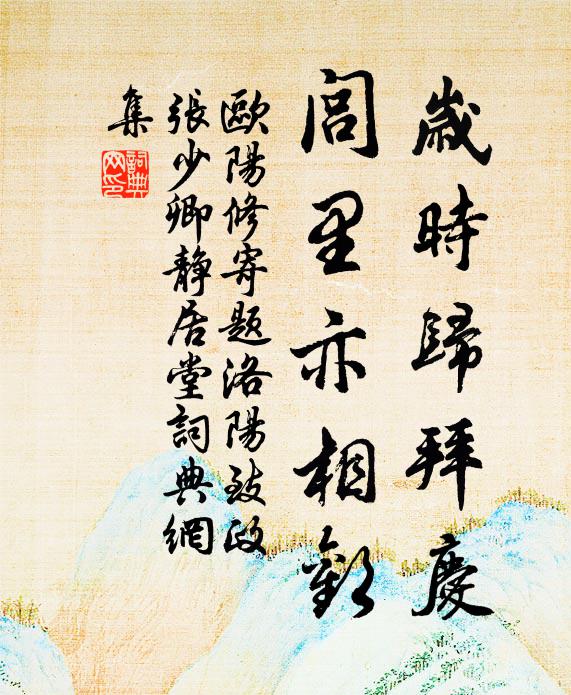 歲時歸拜慶
閭里亦相歡
歐陽修寄題洛陽致政
張少卿靜居堂詞典網
集
詞典
网印